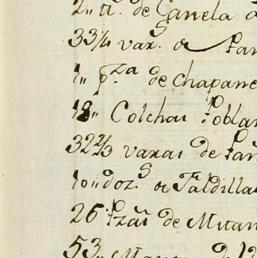 2,, tt. de Canela a
33¼ var.s de Pan
1,, p.za de chapane
18,, Colchas Poblan
32⅔ varas de Pañ
10,, doz.s de Faldilla
26 Pzas de Mitan
53,, Mant